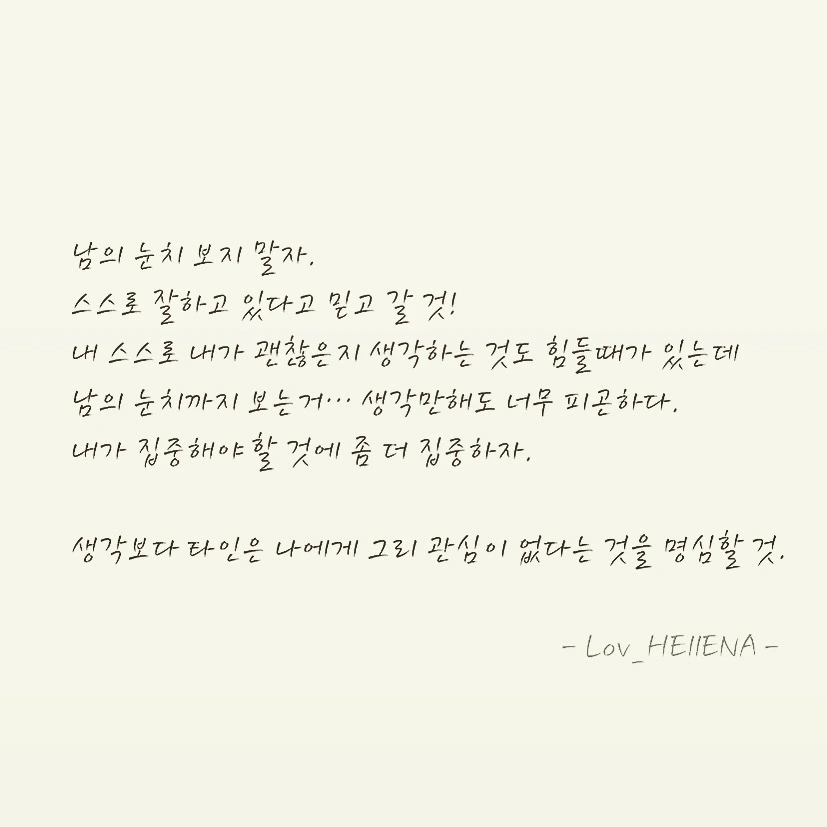 남의 눈치 보지 말자.
스스로 잘하고 있다고 믿고 갈 것!
내 스스로 내가 괜찮은지 생각하는 것도 힘들때가 있는데
남의 눈치까지 보는거... 생각만해도 너무 피곤하다.
내가 집중해야할 것에 좀 더 집중하자.
생각보다 타인은 나에게 그리 관심이 없다는 것을 명심할 것.
- Lov_HEllENA -